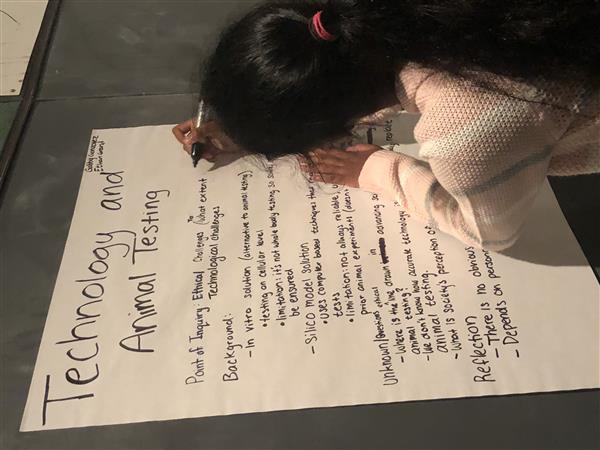 Technology and
Animal Testing
Point of Inquiry: Ethical Challenges To (what extent
Technological challenges
Background:
- In vitro solution (alternative to animal testing)
• testing on cellular level
• limitation: it's not whole body testing so
be ensured
- Silico model solution
• uses computer based techniques
tests
• limitation: not always reliable,
prior animal experiments (doesn't
replicate
Unknown/
- Where is the line drawn in advancing
animal testing?
- We don't know how accurate technology
animal testing.
- What is society's perception of
Reflection
- There is no obvious
- Depends on